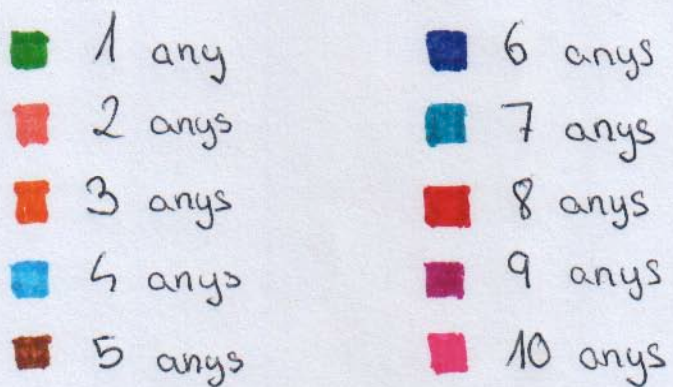 1 any
2 anys
3 anys
4 anys
5 anys
6 anys
7 anys
8 anys
9 anys
10 anys